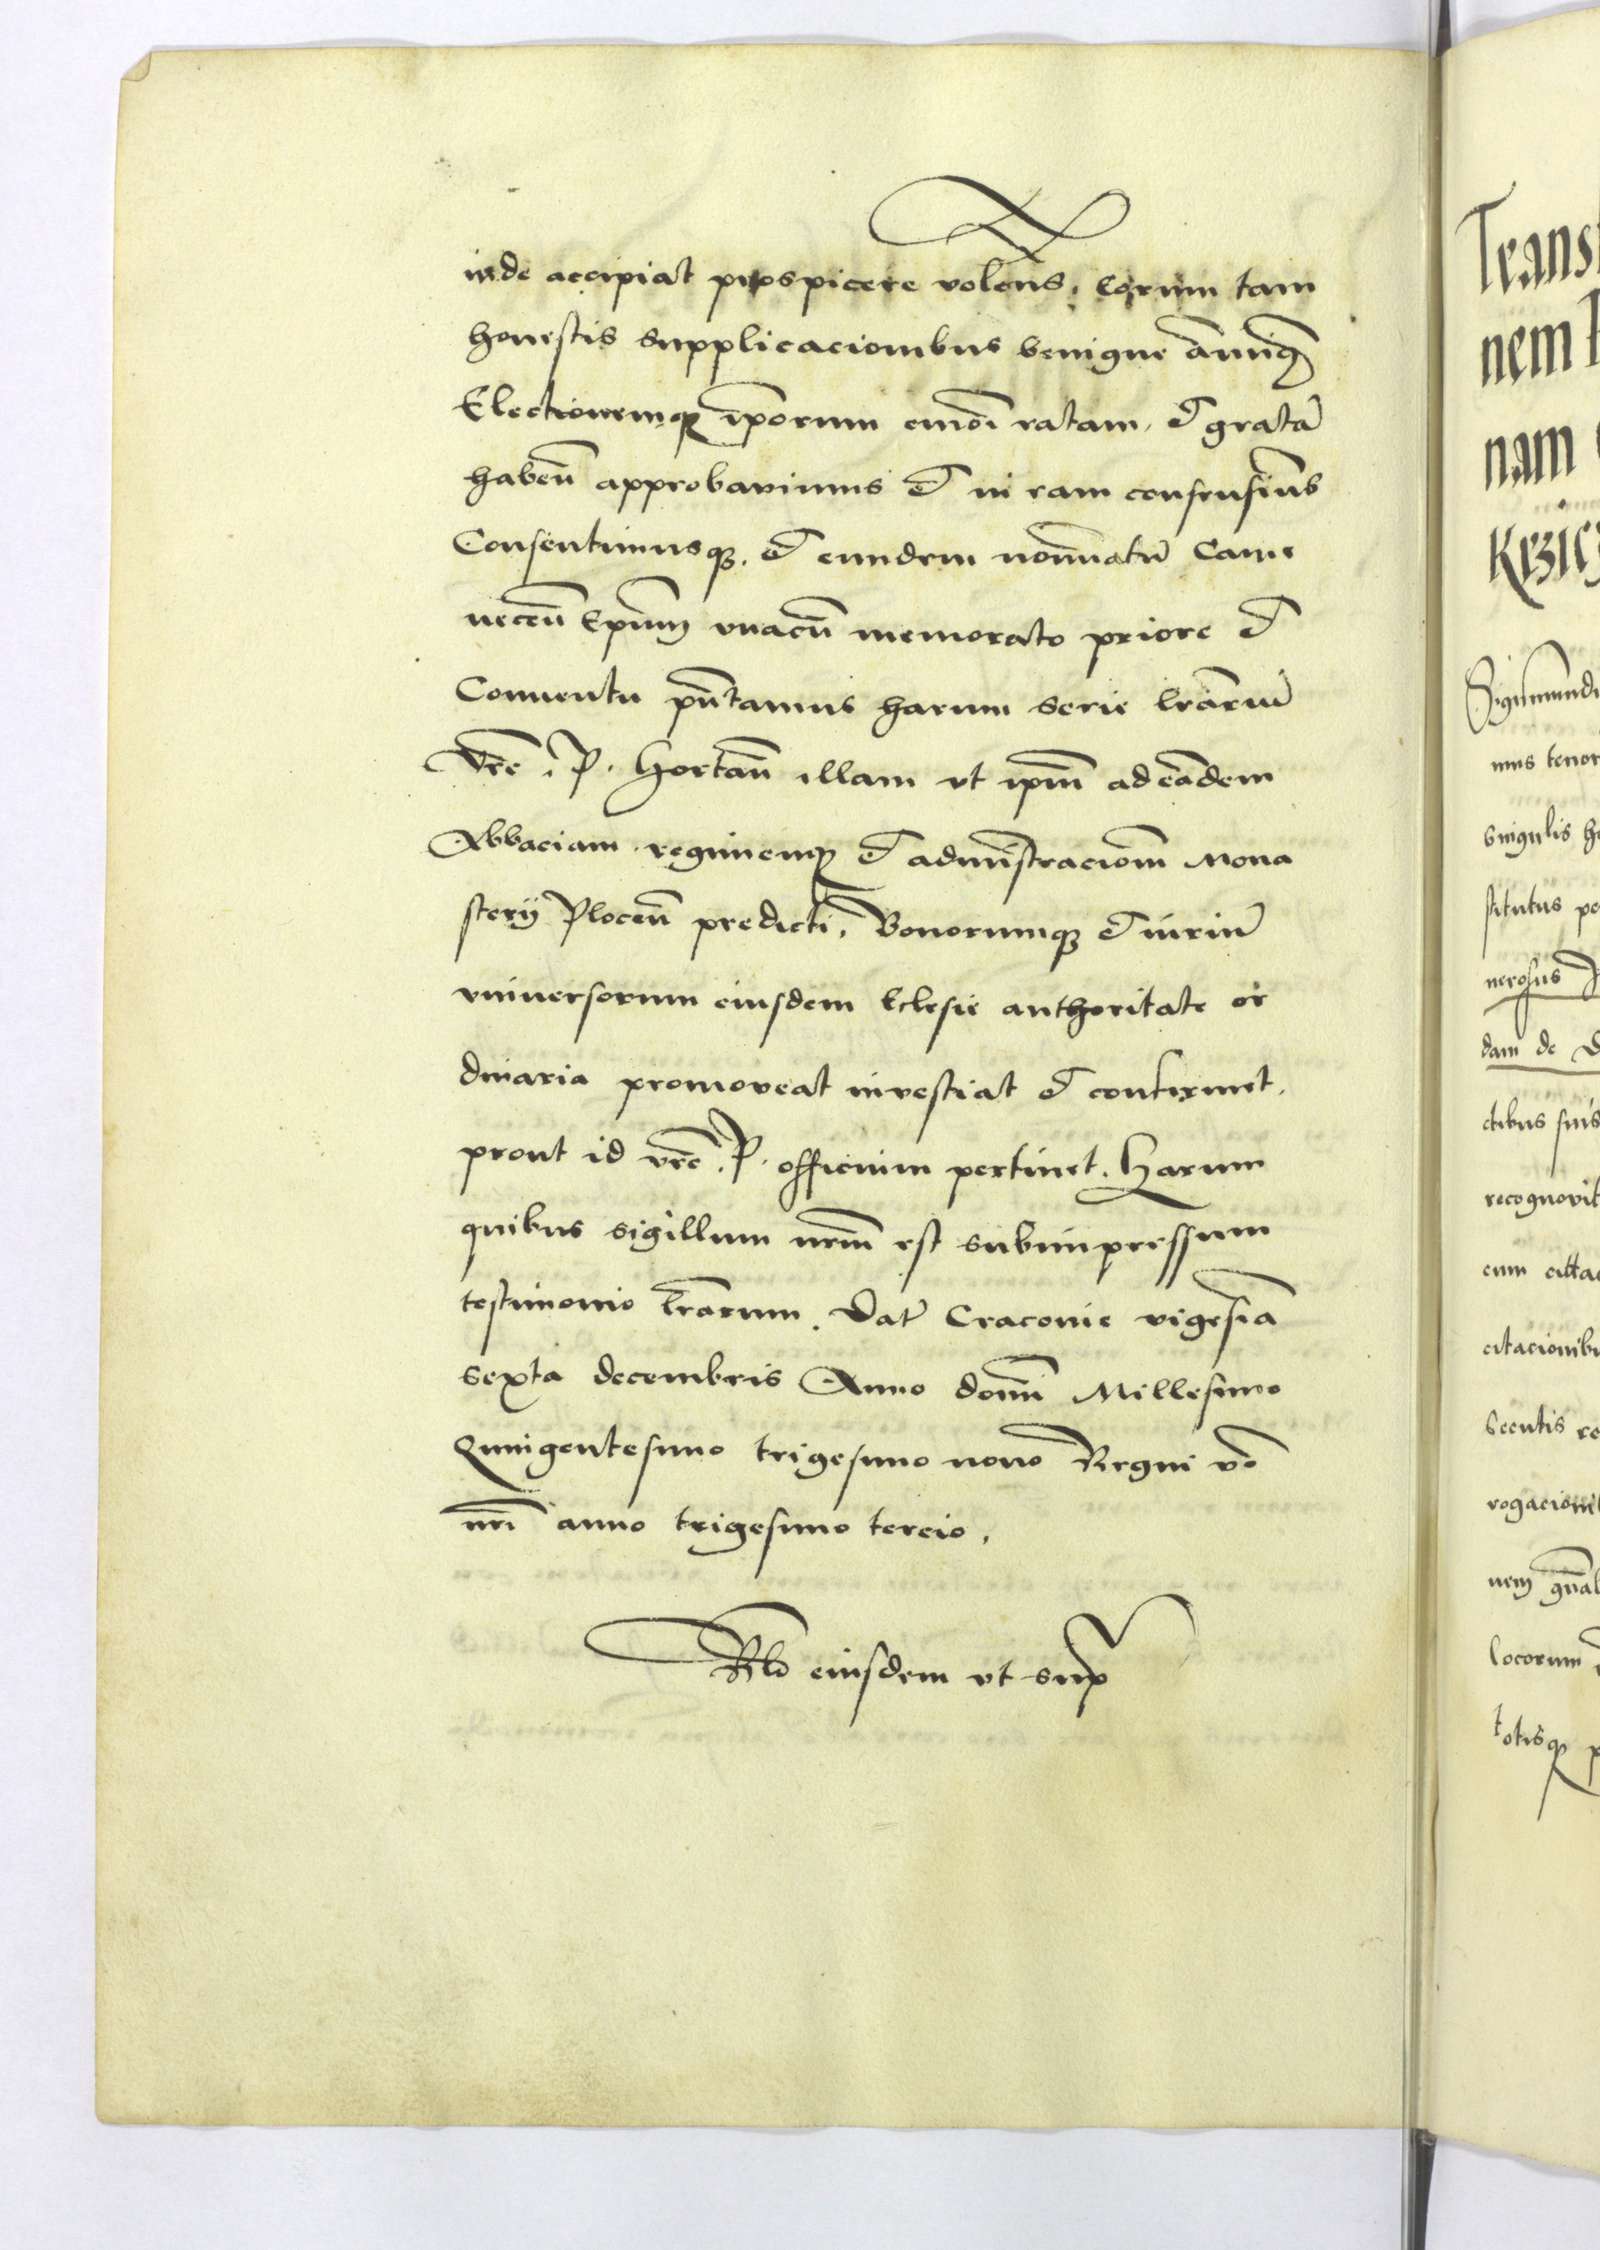 inde accipiat prospicere volens, Eorum tam
honestis supplicacionibus benigne annuim9
Electionemq3 ip̄orum em̄oi ratam, et gratā
habeñ approbavimus et in eam consensim9
Consentimusq3, et eundem nom̄inatū Came
neceñ Ep̄um vnacū memorato priore et
Conuentu p̄ñtamus harum serie l̄rarum̄
Vr̄e, P. hortañ illam vt ip̄m ad eādem
Abbaciam regimenq3 et administracionē Mona
sterij Ploceñ predicti, Bonorumq3 et iuriū
vniuersorum eiusdem Eclesie authoritate or
dinaria promoveat investiat et confirmet,
prout id vr̄e, P. officium pertinet. Harum
quibus sigillum nr̄m est subimpressum
testimonio l̄rarum. Dat̄ Cracovie vigesīa
sexta decembris Anno domī Millesimo
Quingentesimo trigesimo nono Regni vo
nr̄i anno trigesimo tercio,
Rlō eiusdem vt sup
Transs
nem
nam
Sigismundu
mus tenor
singulis
stitutus pe
nerosus
dam de
ctibus suis
recognovit
cum
citacionibu
secutis re
rogacionib
nem gn̄al
locorum
totisq3 p